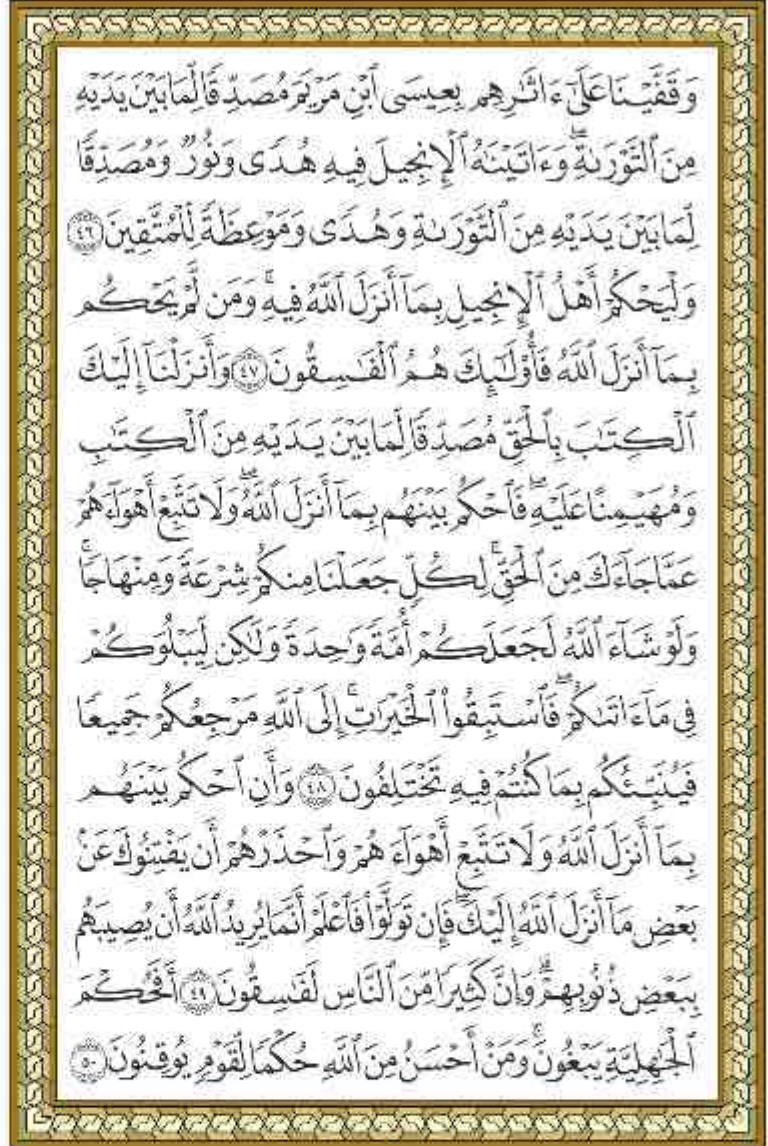 وَقَفَّيْنَا عَلَىٰٓ ءَاثَٰرِهِم بِعِيسَى ٱبْنِ مَرْيَمَ مُصَدِّقًا لِّمَا بَيْنَ يَدَيْهِ
مِنَ ٱلتَّوْرَىٰةِۖ وَءَاتَيْنَٰهُ ٱلْإِنجِيلَ فِيهِ هُدًى وَنُورٌ وَمُصَدِّقًا
لِّمَا بَيْنَ يَدَيْهِ مِنَ ٱلتَّوْرَىٰةِ وَهُدًى وَمَوْعِظَةً لِّلْمُتَّقِينَ ٤٦
وَلْيَحْكُمْ أَهْلُ ٱلْإِنجِيلِ بِمَآ أَنزَلَ ٱللَّهُ فِيهِۚ وَمَن لَّمْ يَحْكُم
بِمَآ أَنزَلَ ٱللَّهُ فَأُو۟لَٰٓئِكَ هُمُ ٱلْفَٰسِقُونَ ٤٧ وَأَنزَلْنَآ إِلَيْكَ
ٱلْكِتَٰبَ بِٱلْحَقِّ مُصَدِّقًا لِّمَا بَيْنَ يَدَيْهِ مِنَ ٱلْكِتَٰبِ
وَمُهَيْمِنًا عَلَيْهِۖ فَٱحْكُم بَيْنَهُم بِمَآ أَنزَلَ ٱللَّهُۖ وَلَا تَتَّبِعْ أَهْوَآءَهُمْ
عَمَّا جَآءَكَ مِنَ ٱلْحَقِّۚ لِكُلٍّ جَعَلْنَا مِنكُمْ شِرْعَةً وَمِنْهَاجًاۚ
وَلَوْ شَآءَ ٱللَّهُ لَجَعَلَكُمْ أُمَّةً وَٰحِدَةً وَلَٰكِن لِّيَبْلُوَكُمْ
فِى مَآ ءَاتَىٰكُمْۖ فَٱسْتَبِقُوا۟ ٱلْخَيْرَٰتِۚ إِلَى ٱللَّهِ مَرْجِعُكُمْ جَمِيعًا
فَيُنَبِّئُكُم بِمَا كُنتُمْ فِيهِ تَخْتَلِفُونَ ٤٨ وَأَنِ ٱحْكُم بَيْنَهُم
بِمَآ أَنزَلَ ٱللَّهُ وَلَا تَتَّبِعْ أَهْوَآءَهُمْ وَٱحْذَرْهُمْ أَن يَفْتِنُوكَ عَنۢ
بَعْضِ مَآ أَنزَلَ ٱللَّهُ إِلَيْكَۖ فَإِن تَوَلَّوْا۟ فَٱعْلَمْ أَنَّمَا يُرِيدُ ٱللَّهُ أَن يُصِيبَهُم
بِبَعْضِ ذُنُوبِهِمْۗ وَإِنَّ كَثِيرًا مِّنَ ٱلنَّاسِ لَفَٰسِقُونَ ٤٩ أَفَحُكْمَ
ٱلْجَٰهِلِيَّةِ يَبْغُونَۚ وَمَنْ أَحْسَنُ مِنَ ٱللَّهِ حُكْمًا لِّقَوْمٍ يُوقِنُونَ ٥٠